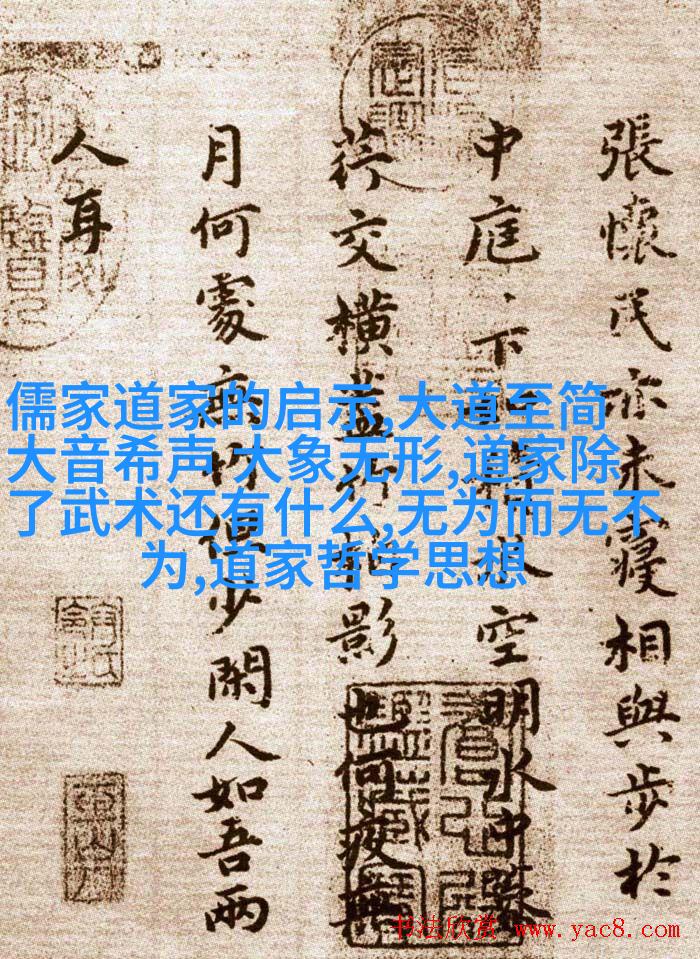 張懷民亦未寢相與步於
中庭、下水空明水中藻
荇交橫蓋竹影也何夜無
月何處無竹少閑人如吾兩
人耳
儒家道家的启示,大道至简
大音希声 大象无形,道家除
了武术还有什么,无为而无不
为,道家哲学思想
书法欣赏 www.yac8.com